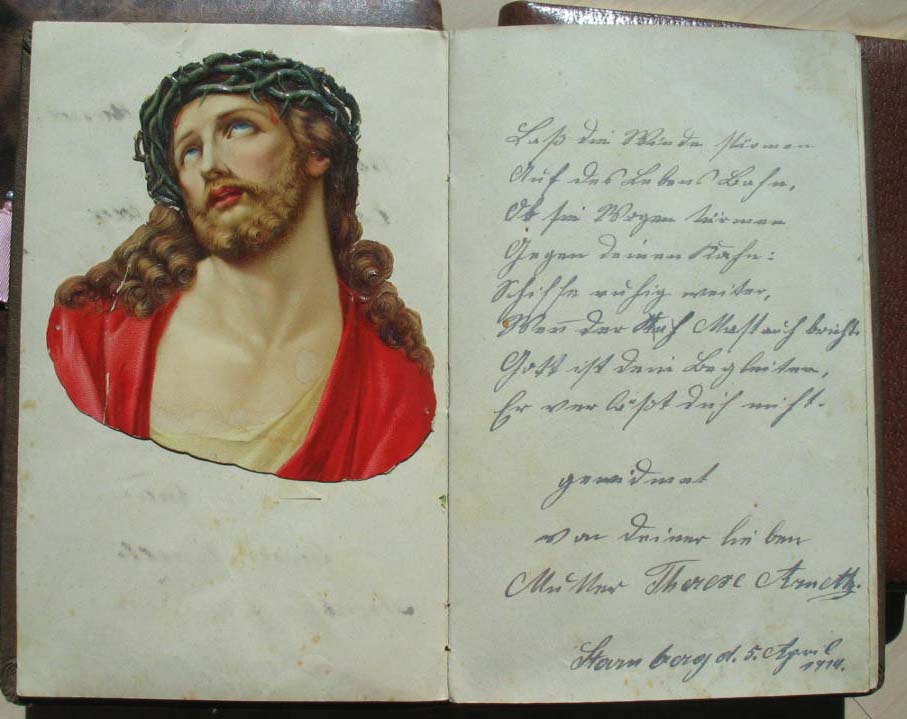 Laß die Winde stürmen
Auf des Lebens Bahn,
Ob sie Wogen türmen
Gegen deinen Kahn:
Schiffe ruhig weiter,
Wen̄ der Mast auch bricht.
Gott ist dein Begleiter,
Er verläßt dich nicht.
gewidmet
von deiner lieben
Mutter Therese Arneth.
Starnberg d. 5. April